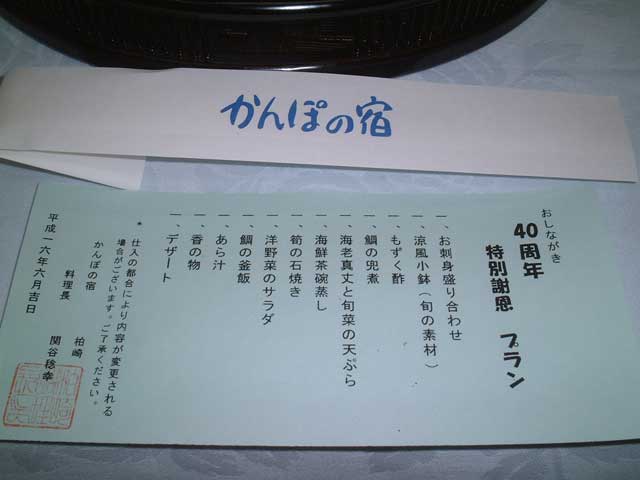 かんぽの宿
おしながき
40周年
特別謝恩 プラン
一、お刺身盛り合わせ
一、涼風小鉢（旬の素材）
一、もずく酢
一、鯛の兜煮
一、海老真丈と旬菜の天ぷら
一、海鮮茶碗蒸し
一、筍の石焼き
一、洋野菜のサラダ
一、鯛の釜飯
一、あら汁
一、香の物
一、デザート
＊ 仕入の都合により内容が変更される
場合がございます。ご了承ください。
かんぽの宿 柏崎
料理長 関谷稔幸
平成一六年六月吉日